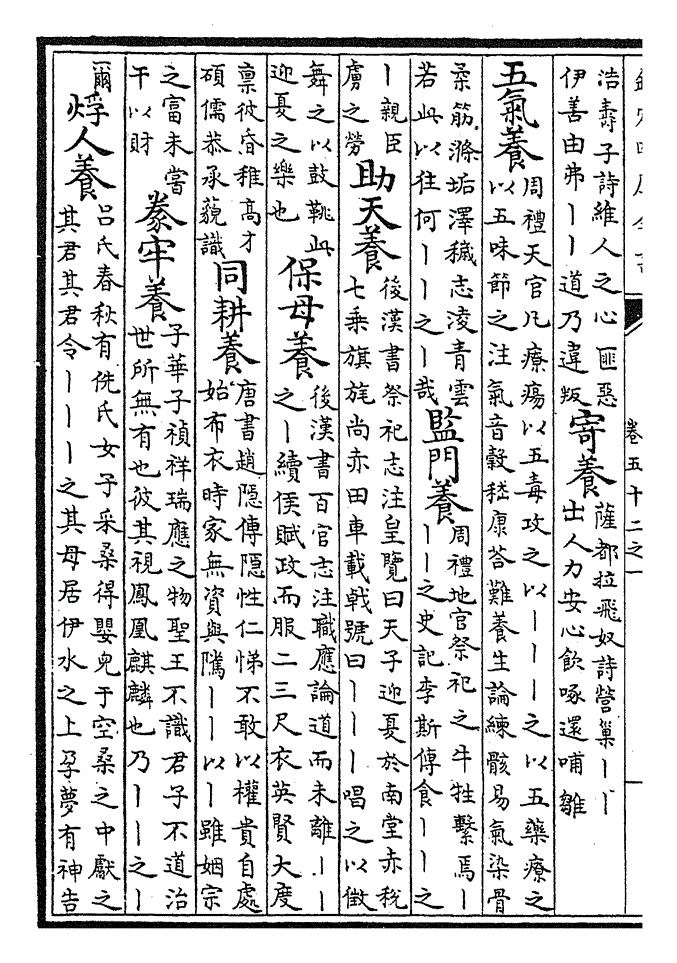 卷五十二之一
浩壽子詩維人之心匪惡
伊善由弗丨丨道乃違叛
寄養
薩都拉飛奴詩營巢丨丨
出人力安心飲啄還哺雛
五氣養
周禮天官凡療瘍以五毒攻之以丨丨丨之以五藥療之
以五味節之注氣音穀嵇康荅難養生論練骸易氣染骨
柔筋滌垢澤穢志淩青雲
若此以往何丨丨之丨哉
監門養
周禮地官祭祀之牛牲繫焉丨
丨丨之史記李斯傳食丨丨之
丨親臣
虜之勞
助天養
後漢書祭祀志注皇覽曰天子迎夏於南堂赤稅
七乘旗旄尚赤田車載戟號曰丨丨丨唱之以徵
舞之以鼓鞉此
迎夏之樂也
保母養
後漢書百官志注職應論道而未離丨丨
之丨續侯賦政而服二三尺衣英賢大度
禀彼昏稚高才
碩儒恭承藐識
同耕養
唐書趙隱傳隱性仁悌不敢以權貴自處
始布衣時家無資與騭丨丨以丨雖姻宗
之富未嘗
干以財
豢牢養
子華子禎祥瑞應之物聖王不識君子不道治
世所無有也彼其視鳳凰麒麟也乃丨丨之丨
爾
烰人養
呂氏春秋有侁氏女子采桑得嬰兒于空桑之中獻之
其君其君令丨丨丨之其母居伊水之上孕夢有神告